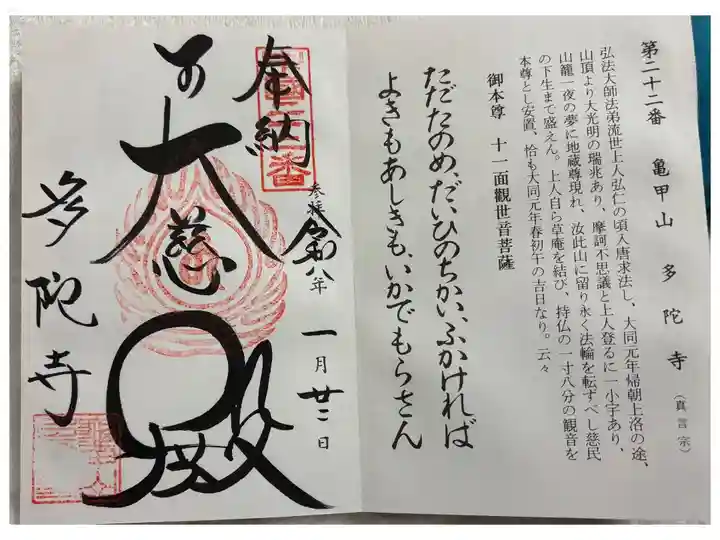 第二十二番 亀甲山 多陀寺 (真言宗)
弘法大師法弟流世上人弘仁の頃入唐求法し、大同元年帰朝上洛の途、
山頂より大光明の瑞兆あり、摩訶不思議と上人登るに一小宇あり、
山籠一夜の夢に地蔵尊現れ、汝此山に留り永く法輪を転ずべし慈民
の下生まで盛えん。上人自ら草庵を結び、持仏の一寸八分の観音を
本尊とし安置、恰も大同元年春初午の吉日なり。云々
御本尊 十一面觀世音菩薩
ただたのめ、だいひのちかい、ふかければ
よきもあしきも、いかでもらさん
奉納
参拝 令和八年 一月廿二日
大慈殿
多陀寺